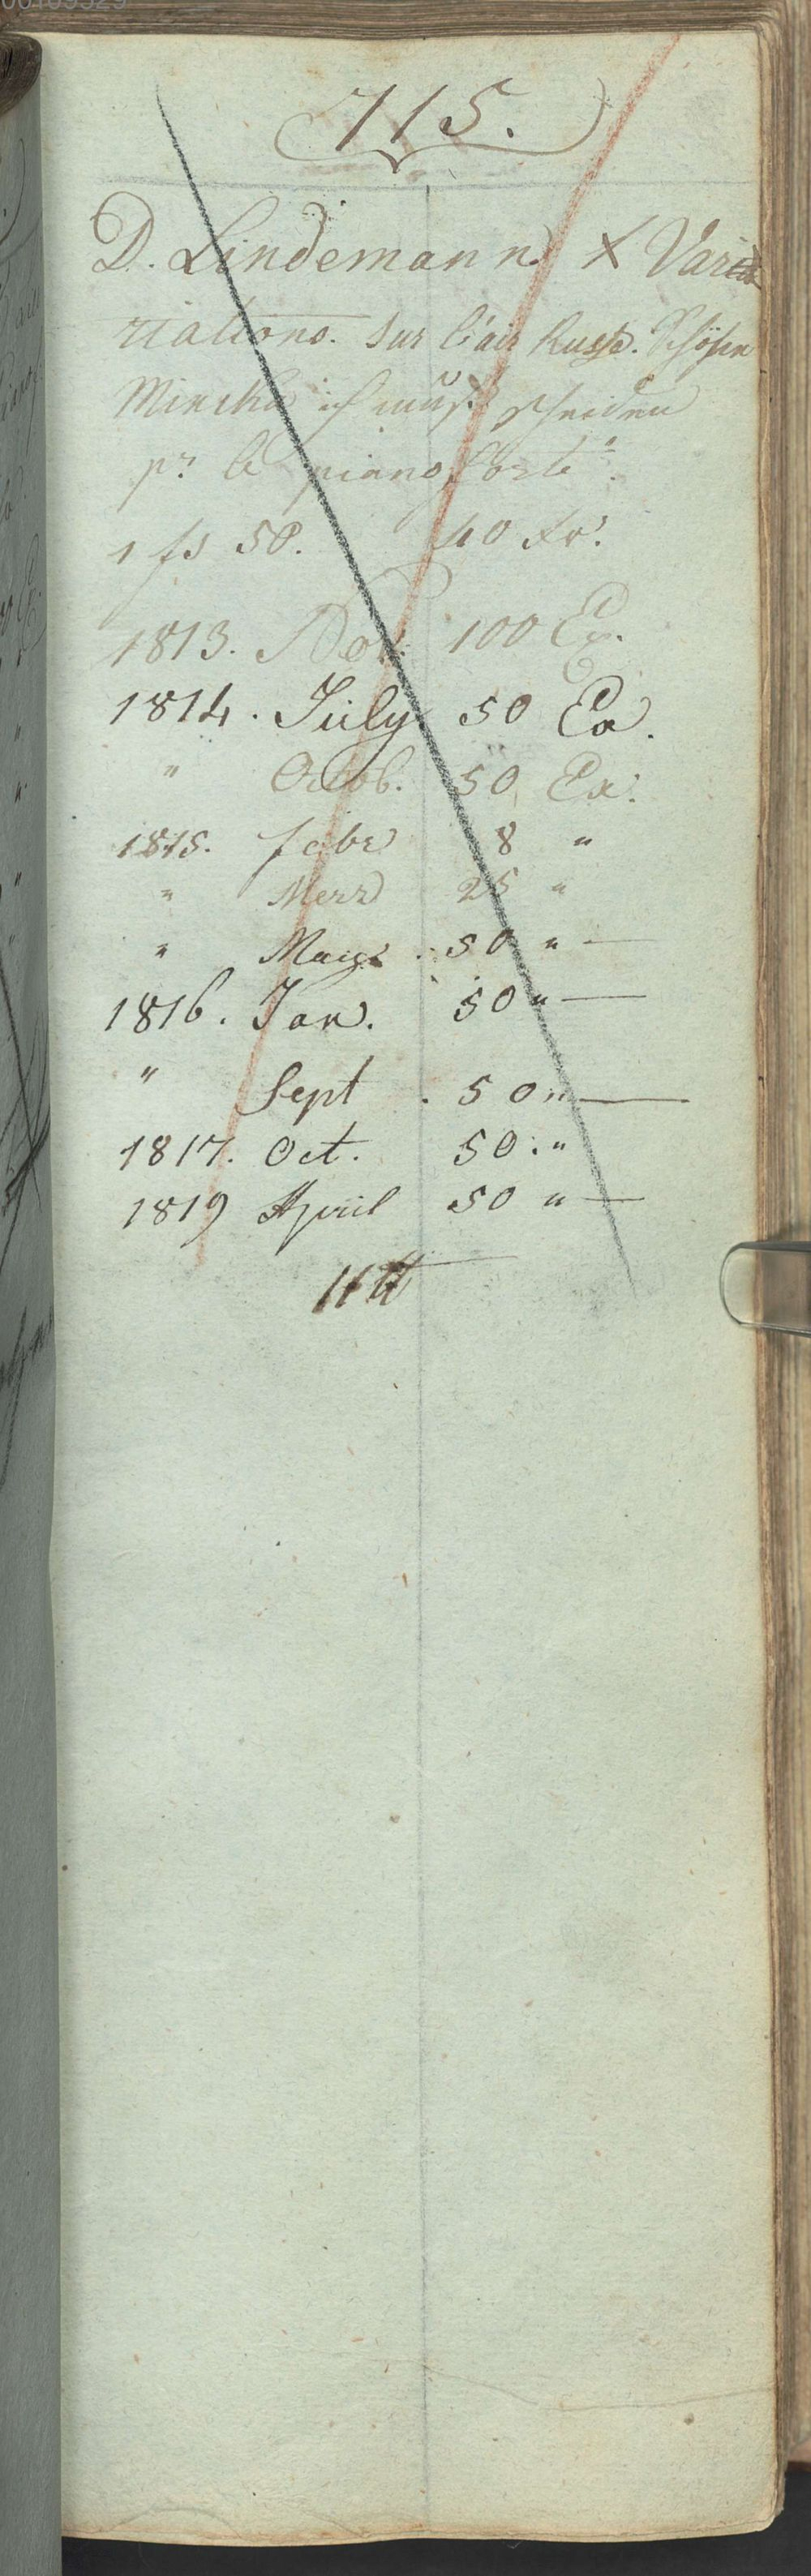 715.
D. Lindemann. X Varia
riations. sur l'air Russe. Schöhn
Mincka ich muß scheiden
pr. le piano forte.
1 fs 50. 40 Xr.
1813. Nov. 100 Ex.
1814. July 50 Ex.
" Octob. 50 Ex.
1815. febr 8 "
" Merz 25 "
" Mays 50 " —
1816. Jan. 50 " —
" Sept. 50 " —
1817. Oct. 50. "
1819 April 50 " —